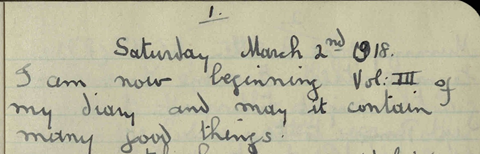 1.
Saturday March 2nd 1918.
I am now beginning Vol: III of
my diary and may it contain
many good things.